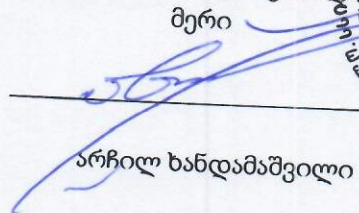 მერი
არჩილ ხანდამაშვილი